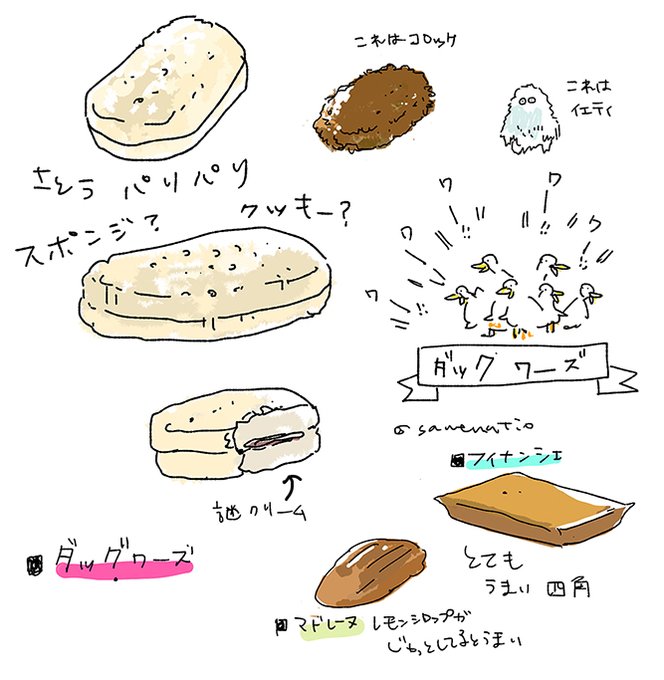 これはコロッケ
これは
イエティ
さとう パリパリ
スポンジ？
クッキー？
ワ
ワ
ワ
ワ
ワ
ダックワーズ
謎クリーム
ダックワーズ
@sanenatio
フィナンシェ
とても
うまい 四角
マドレーヌ レモンシロップが
じゅっとしてるとうまい